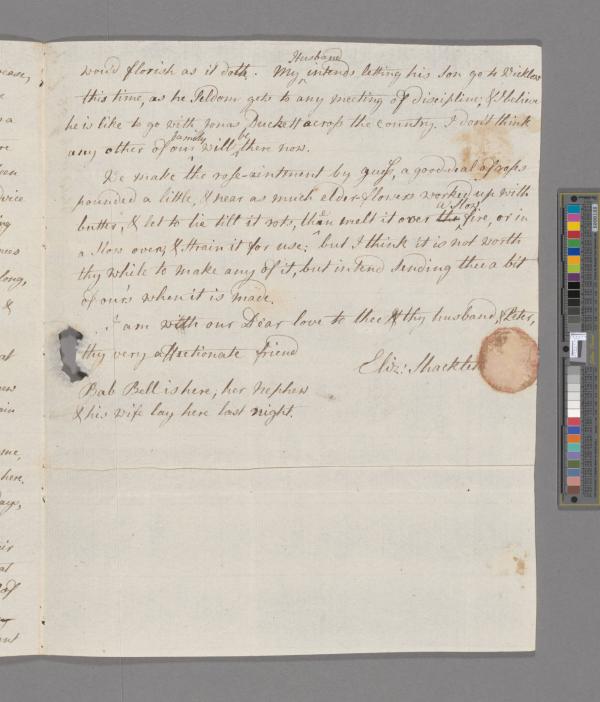 ease,
e
sa
re
been
dvice
ing
mes
long,
&
at
new
ain
me,
here,
days,
eir
at
of
ent
Husband
woud florish as it doth. My ^ intends letting his son go to Wicklow
this time, as he seldom gets to any meeting of discipline; & I believe
he is like to go with Jonas Duckett across the country. I don't think
family be
any other of our ^ will ^ there now.
We make the rose-aintment by guess, a good deal of roses
pounded a little, & near as much elder-flowers worked up with
a slow
butter, & let to lie till it rots, then melt it over the ^ fire, or in
a slow oven, & strain it for use; but I think it is not worth
thy while to make any of it, but intend sending thee a bit
of ours when it is made.
I am with our Dear love to thee & thy husband, & Peter,
thy very affectionate friend
Eliz: Shackleton
Bab Bell is here, her nephew
& his wife lay here last night.